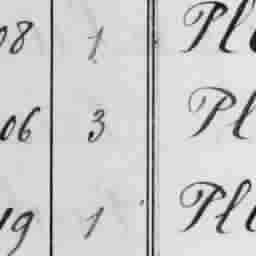 08 1 Pl
06 3 Pl
19 1 Pl